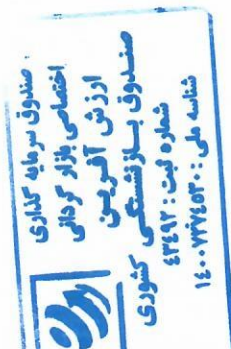 صندوق سرمایه گذاری
اختصاصی بازار گردانی
ارزش آفرین
صندوق بازنشستگی کشوری
شماره ثبت : ۴۳۴۹۲
شناسه ملی : ۱۴۰۰۷۲۷۶۵۳۰